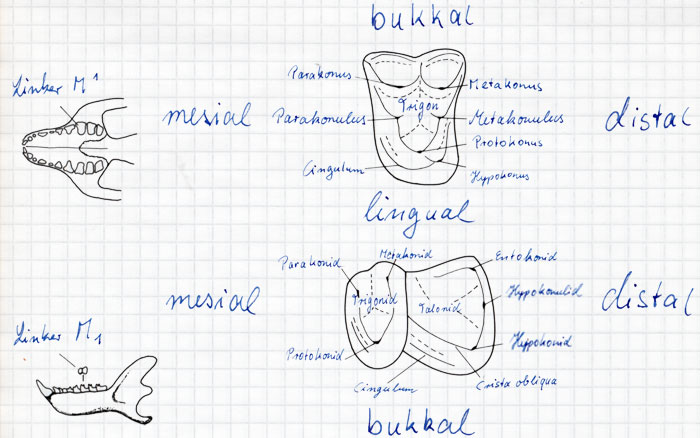 bukkal
Linker M¹
mesial
Parakonus
Metakonus
Trigon
Parakonulus
Metakonulus
distal
Protokonus
Cingulum
Hypokonus
lingual
Parakonid
Metakonid
Entokonid
mesial
Trigonid
Talonid
Hypokonulid
distal
Linker M₁
Protokonid
Hypokonid
Cingulum
Crista obliqua
bukkal